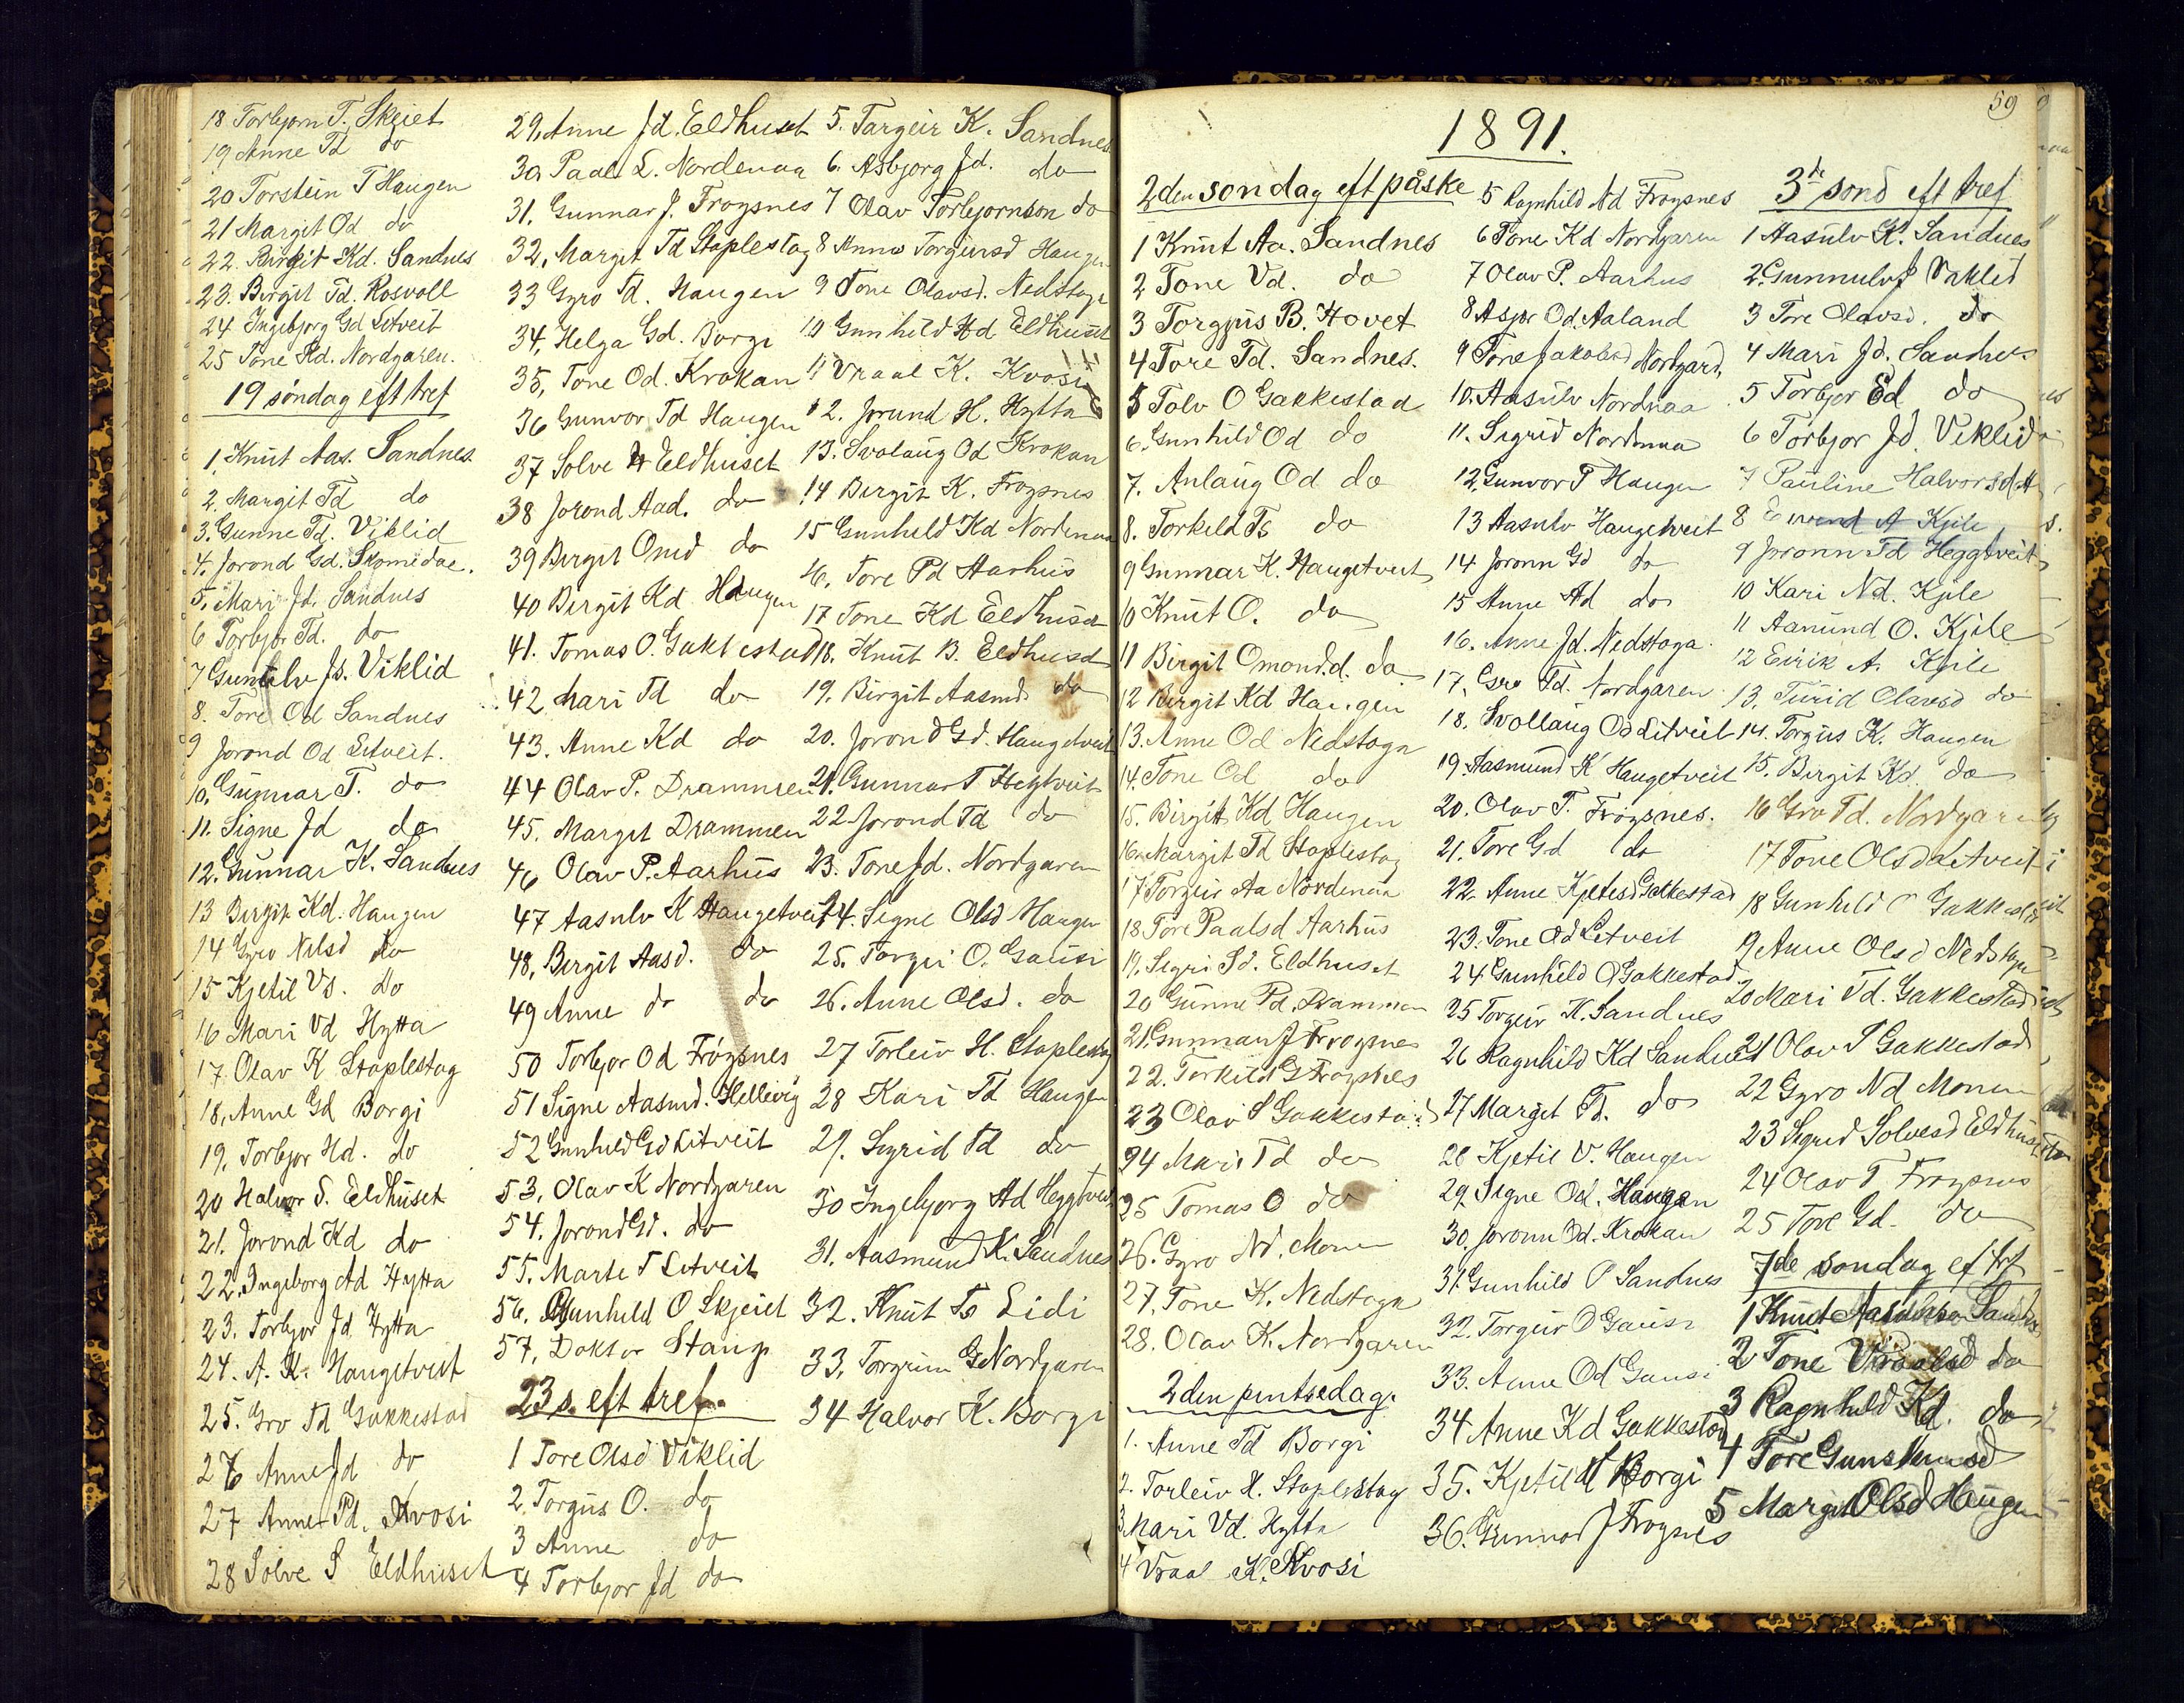 18 Torbjorn T. Skeiet
19 Anne Td do
20 Torstein T Haugen
21 Margit Od do
22. Birgit Kd. Sandnes
23. Birgit Td. Rosvoll
24 Ingebjorg Gd Litveit
25 Tone Kd. Nordgaren.
19 söndag eft tref
1, Knut Aas. Sandnes.
2. Margit Td do
3. Gunne Td. Viklid
4. Jorond Gd. Skomedae.
5, Mari Jd. Sandnes
6 Torbjor Td. do
7 Gunulv Js. Viklid
8. Tore Od Sandnes
9 Jorond Od Litveit.
10. Gunnar T. do
11. Signe Jd do
12. Gunnar K. Sandnes
13 Birgit Kd. Haugen
14 Gyro Nilsd do
15 Kjetil Vs. do
16 Mari Vd Hytta
17. Olav K Staplestog
18, Anne Gd Borgi
19, Torbjor Hd. do
20 Halvor S. Eldhuset
21. Jorond Kd do
22. Ingeborg Ad Hytta
23. Torbjor Jd Hytta
24. A. K. Haugetveit
25. Gro Td Gakkestad
26 Anne Jd do
27 Anne Pd. Kvosi
28 Solve S Eldhuset
29, Anne Jd. Eldhuset
30, Paal L. Nordenaa
31. Gunnar J. Froysnes
32, Margit Td Staplestog
33 Gyro Td. Haugen
34, Helga Gd. Borgi
35, Tone Od. Krokan
36 Gunvor Td Haugen
37 Solve Eldhuset
38 Jorond Aad. do
39 Birgit Omd do
40 Birgit Kd Haugen
41. Tomas O. Gakkestad
42 Mari Td do
43. Anne Kd do
44 Olav P. Drammen
45. Margit Drammen
46 Olav P. Aarhus
47 Aasulv K Haugetveit
48, Birgit Aasd. do
49 Anne do do
50 Torbjor Od Fröysnes
51 Signe Aasmd. Hellevig
52 Gunhild Gd Litveit
53, Olav K Nordgaren
54. Jorond Gd. do
55. Marte T Litveit
56. Gunhild O Skjeiet
57, Doktor Stang
23 s. eft tref.
1 Tore Olsd Viklid
2. Torgus O. do
3 Anne do
4 Torbjor Jd do
5. Targeir K. Sandnes
6. Asbjorg Jd. do
7 Olav Torbjornson do
8 Anne Torgeirsd Haugen
9 Tone Olavsd. Nedstoga
10 Gunhild Hd Eldhuset
11 Vraal K. Kvosi
12. Jorund H. Hytta
13. Svolaug Od Krokan
14 Birgit K. Froysnes
15 Gunhild Kd Nordenaa
16. Tore Pd Aarhus
17 Tone Kd Eldhuset
18. Knut B. Eldhusd
19. Birgit Aasmd. do
20. Jorond Gd. Haugetveit
21. Gunnar T Hegtveit
22 Jorond Td do
23. Tone Jd. Nordgaren
24. Signe Olsd Haugen
25. Torgei O. Gausi
26. Anne Olsd. do
27 Torleiv H. Staplestog
28 Kari Td Haugen
29. Sigrid Td do
30 Ingebjorg Ad Heggtveit
31. Aasmund K. Sandnes
32. Knut Ts Lidi
33. Torgrim G Nordgaren
34 Halvor K. Borgi
59
1891.
2den sondag eft påske
1 Knut Aa. Sandnes
2 Tone Vd. do
3 Torgjus B. Hovet
4 Tore Td. Sandnes.
5 Talv O Gakkestad
6. Gunhild Od do
7. Anlaug Od do
8. Torkild Ts do
9 Gunnar K. Haugetveit
10 Knut O. do
11 Birgit Omond.d. do
12 Birgit Kd Haugen
13. Anne Od Nedstoga
14. Tone Od do
15. Birgit Kd Haugen
16. Margit Td Staplestog
17 Torgeir Aa Nordenaa
18 Tore Paalsd Aarhus
19, Segri Sd. Eldhuset
20 Gunne Pd. Drammen
21. Gunnar J Froysnes
22. Torkild G Froysnes
23 Olav S Gakkestad
24 Mari Td do
25 Tomas O do
26. Gyro Nd. Monen
27. Tone K. Nedstoga
28. Olav K. Nordgaren
2den pintsedag.
1. Anne Td Borgi
2. Torleiv H. Staplestog
3. Mari Vd. Hytta
4 Vraal K. Kvosi
5 Ragnhild Nd Froysnes
6 Tone Kd Nordgaren
7 Olav P. Aarhus
8 Asjor Od. Aaland
9 Tone Jakobsd Nordgard,
10. Aasulv Nordnaa
11. Sigrid Nordenaa
12, Gunvor T Haugen
13 Aasulv Haugetveit
14 Joronn Gd do
15 Anne Ad do
16. Anne Jd. Nedstoga
17, Gro Td. Nordgaren
18. Svollaug Od Litveit
19. Aasmund K Haugetveit
20. Olav T. Froysnes.
21. Tore Gd do
22. Anne Kjetilsd Gakkestad
23. Tone Od Litveit
24 Gunhild O Gakkestad
25 Torgeir K. Sandnes
26 Ragnhild Kd Sandnes
27 Margit Td. do
28 Kjetil V. Haugen
29. Signe Od. Haugen
30. Joronn Od. Krokan
31. Gunhild P Sandnes
32. Torgeir O Gausi
33. Anne Od Gausi
34 Anne Kd Gakkestad
35. Kjetil T Borgi
36. Gunnar J Froysnes
3de sond eft tref
1 Aasulv K. Sandnes
2. Gunnulv J Viklid
3 Tore Olavsd. do
4 Mari Jd. Sandnes
5 Torbjor Ed do
6 Torbjor Jd. Viklid
7 Pauline Halvorsd.
8 Eivend A Kjile
9 Joronn Td Heggtveit
10 Kari Nd. Kjile
11 Aanund O. Kjile
12 Eirik A. Kjile
13. Turid Olavsd do
14. Torgus K. Haugen
15. Birgit Kd. do
16 Gro Td. Nordgaren
17 Tone Olsd Litveit
18 Gunhild O Gakkestad
19 Anne Olsd Nedstoga
20 Mari Td. Gakkestad
21 Olav S Gakkestad
22 Gyro Nd Monen
23 Sigrid Solvesd Eldhuset
24 Olav T Froysnes
25 Tore Gd. do
7de sondag ef trf
1 Knut Aasulvson Sandnes
2 Tone Vraalsd do
3 Ragnhild Kd. do
4 Tore Gunsteinsd
5 Margit Olsd Haugen